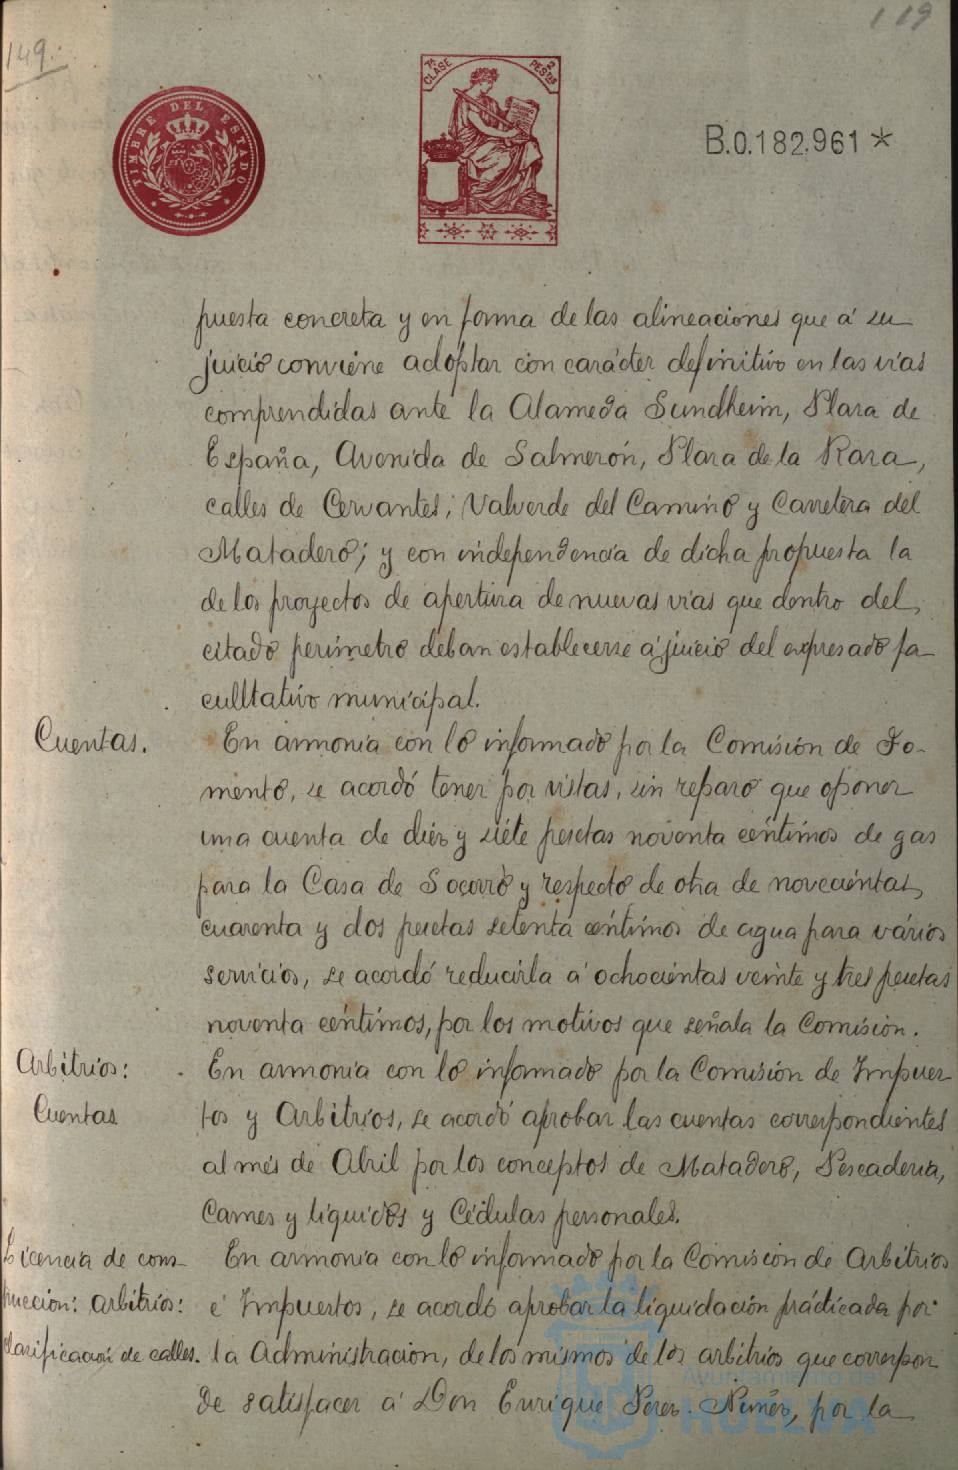 119
149.
TIMBRE DEL ESTADO
7ª CLASE
2 PESTAS
B.0.182.961 *
puesta concreta y en forma de las alineaciones que á su
juicio conviene adoptar con carácter definitivo en las vias
comprendidas ante la Alameda Sundheim, Plaza de
España, Avenida de Salmerón, Plaza de la Raza,
calles de Cervantes, Valverde del Camino y Carretera del
Matadero; y con independencia de dicha propuesta la
de los proyectos de apertura de nuevas vias que dentro del
citado perimetro deban establecerse á juicio del expresado fa-
cultativo municipal.
Cuentas.
En armonia con lo informado por la Comisión de Fo-
mento, se acordó tener por vistas, sin reparo que oponer
una cuenta de diez y siete pesetas noventa céntimos de gas
para la Casa de Socorro y respecto de otra de novecientas
cuarenta y dos pesetas setenta céntimos de agua para vários
servicios, se acordó reducirla á ochocientas veinte y tres pesetas
noventa céntimos, por los motivos que señala la Comisión.
Arbitrios:
Cuentas
En armonia con lo informado por la Comisión de Impues-
tos y Arbitrios, se acordó aprobar las cuentas correspondientes
al mes de Abril por los conceptos de Matadero, Pescaderia,
Carnes y liquidos y Cédulas personales.
Licencia de cons-
trucción: arbitrios:
clasificación de calles.
En armonia con lo informado por la Comisión de Arbitrios
é Impuestos, se acordó aprobar la liquidación practicada por
la Administración, de los mismos de los arbitrios que correspon
de satisfacer á Don Enrique Perez Nuñez, por la
Ayuntamiento de
HUELVA